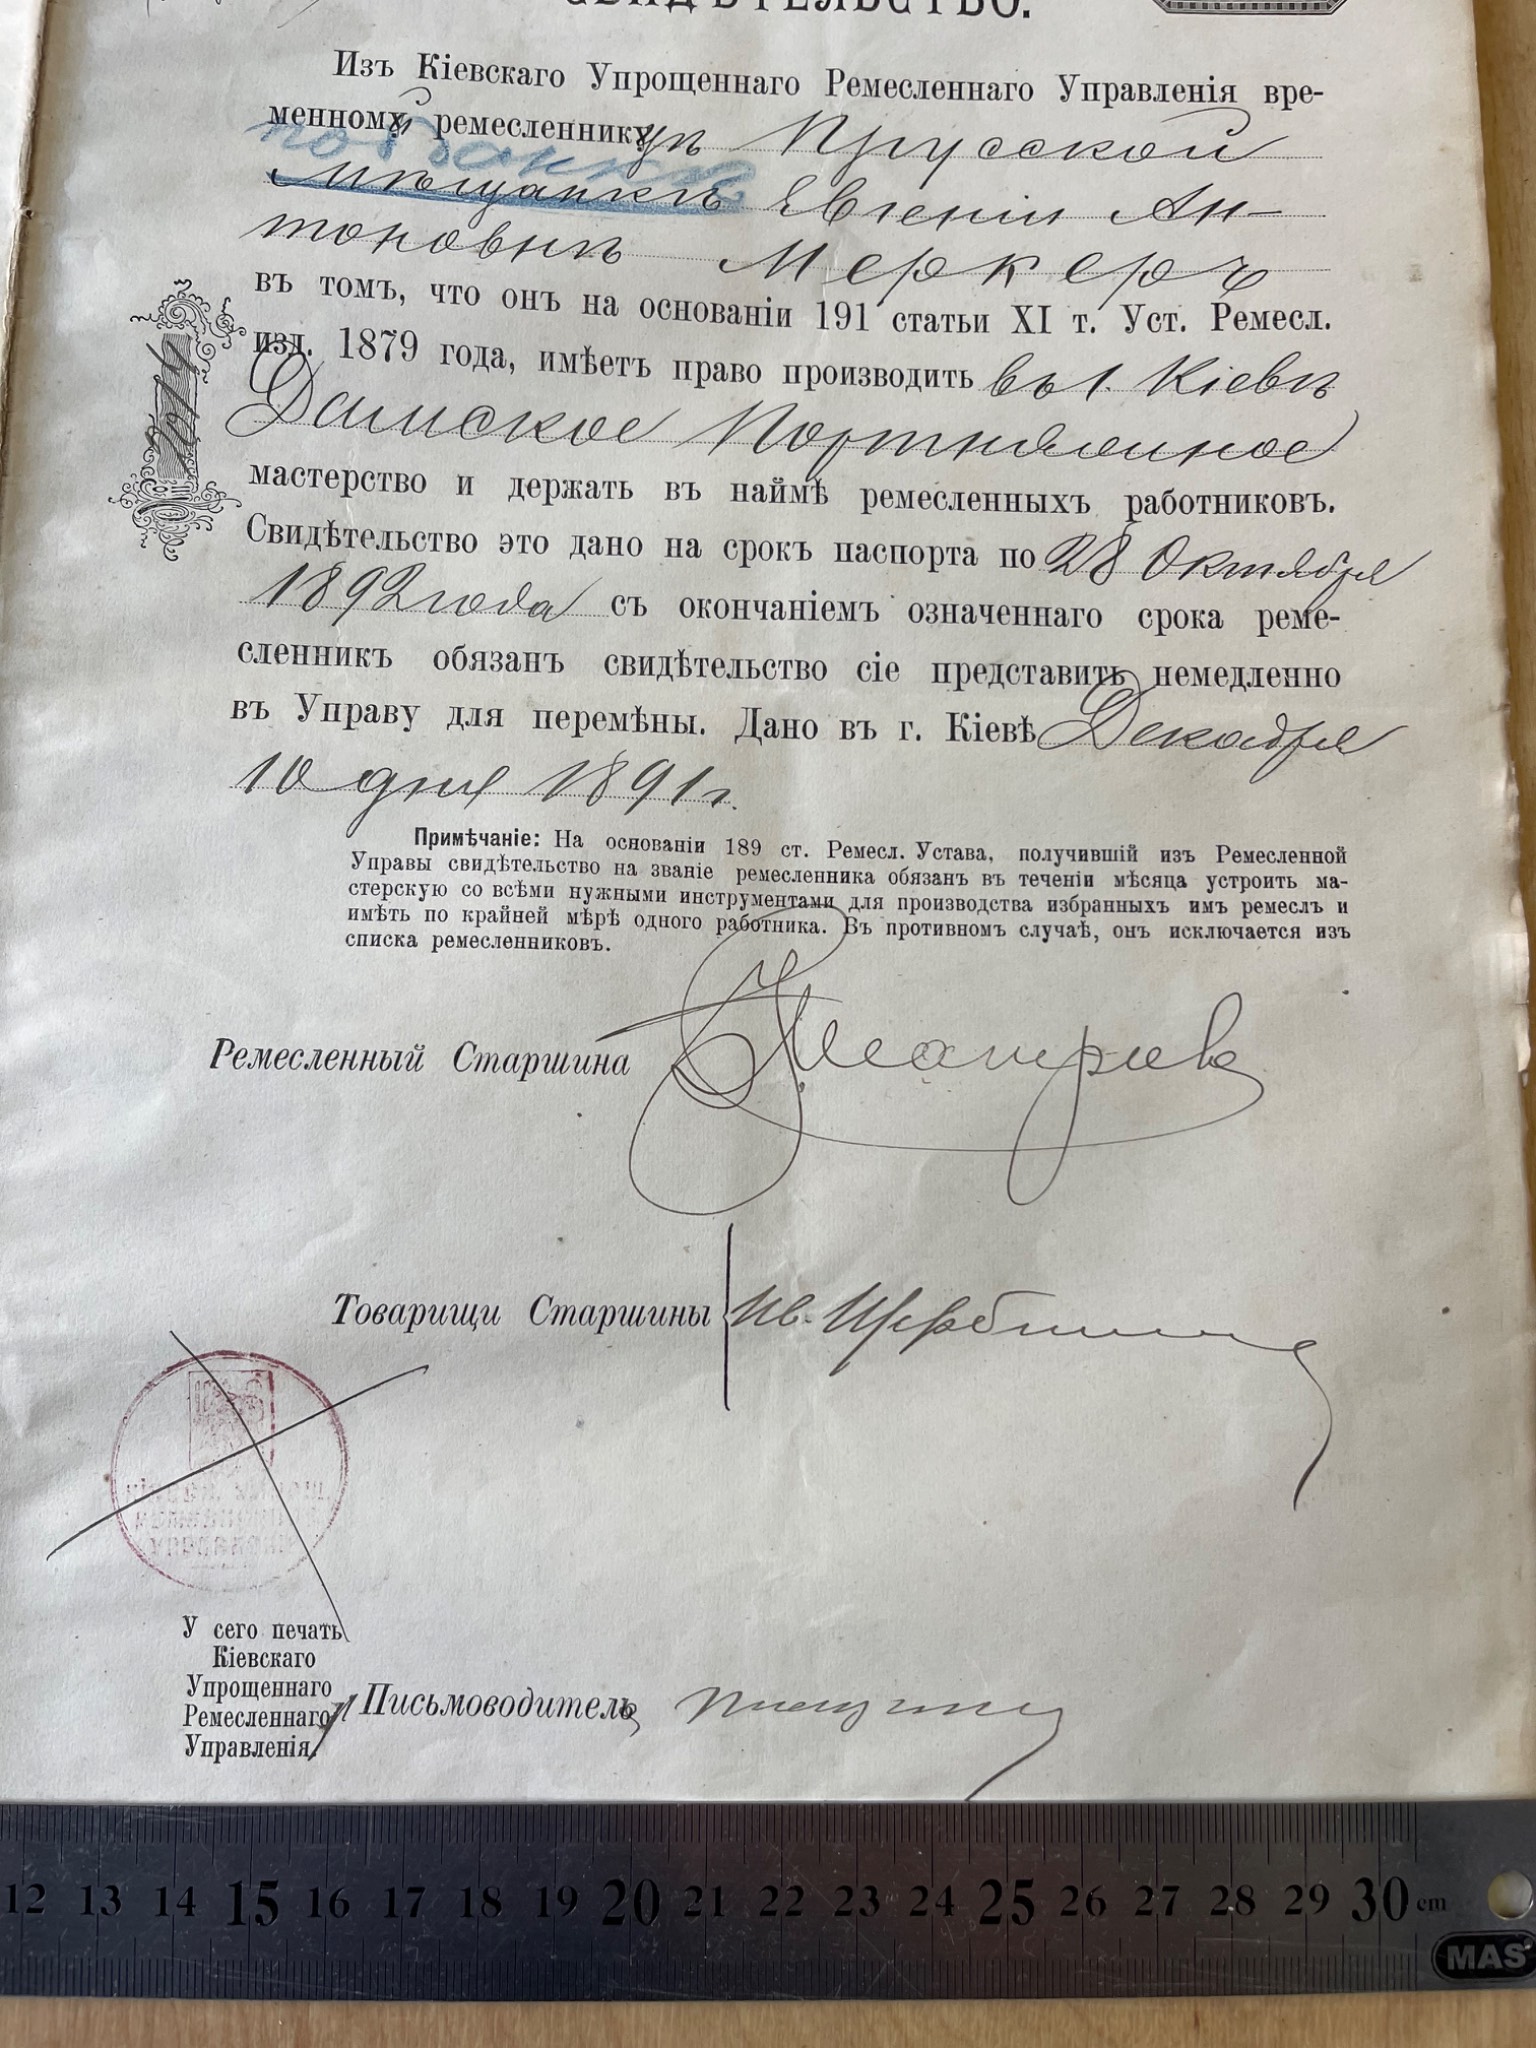 СВИДѢТЕЛЬСТВО.
Изъ Кіевскаго Упрощеннаго Ремесленнаго Управленія вре-
менной ремесленницѣ Прусской
подданкѣ
Мѣщанкѣ Евгеніи Ан-
тоновнѣ Меркеръ
въ томъ, что онъ на основаніи 191 статьи XI т. Уст. Ремесл.
изд. 1879 года, имѣетъ право производить въ г. Кіевѣ
Дамское Портняжное
мастерство и держать въ наймѣ ремесленныхъ работниковъ.
Свидѣтельство это дано на срокъ паспорта по 28 Октября
1892 года съ окончаніемъ означеннаго срока реме-
сленникъ обязанъ свидѣтельство сіе представить немедленно
въ Управу для перемѣны. Дано въ г. Кіевѣ Декабря
10 дня 1891 г.
Примѣчаніе: На основаніи 189 ст. Ремесл. Устава, получившій изъ Ремесленной
Управы свидѣтельство на званіе ремесленника обязанъ въ теченіи мѣсяца устроить ма-
стерскую со всѣми нужными инструментами для производства избранныхъ имъ ремеслъ и
имѣть по крайней мѣрѣ одного работника. Въ противномъ случаѣ, онъ исключается изъ
списка ремесленниковъ.
Ремесленный Старшина
Товарищи Старшины Ив. Щербина
У сего печать
Кіевскаго
Упрощеннаго
Ремесленнаго
Управленія.
Письмоводитель
12 13 14 15 16 17 18 19 20 21 22 23 24 25 26 27 28 29 30 cm
MAS